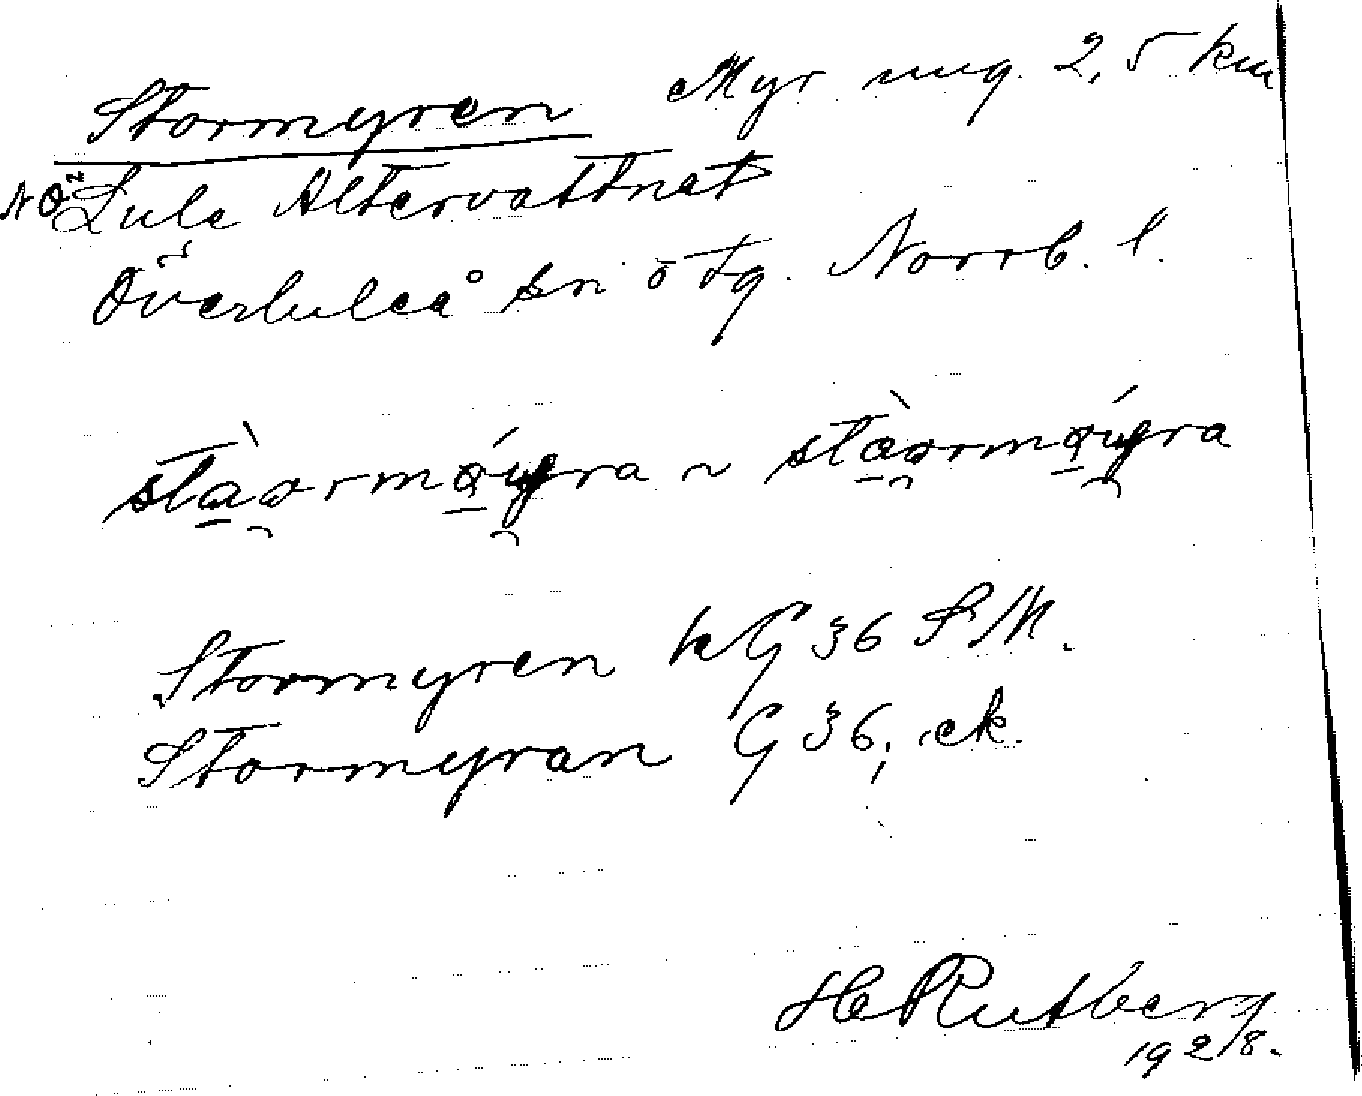 Stormyren Myr ung. 2,5 km
NO Lule Altervattnet
Överluleå sn ö tg. Norrb. l.
Stormyren kG 36 SM.
Stormyran G 36, ek.
H Rutberg
1928.